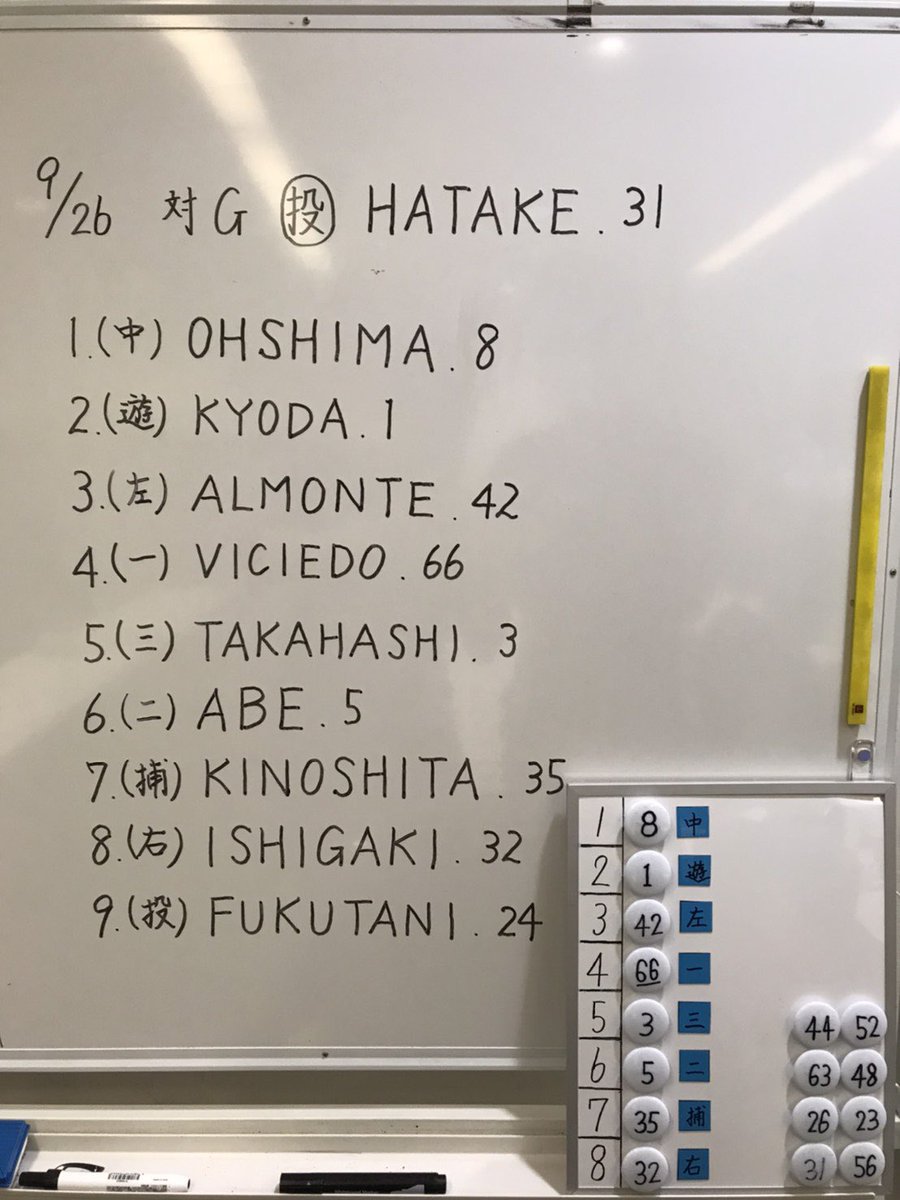 9/26 対G 投 HATAKE. 31
1.(中) OHSHIMA. 8
2.(遊) KYODA. 1
3.(左) ALMONTE. 42
4.(一) VICIEDO. 66
5.(三) TAKAHASHI. 3
6.(二) ABE. 5
7.(捕) KINOSHITA. 35
8.(右) ISHIGAKI. 32
9.(投) FUKUTANI. 24
1 8 中
2 1 遊
3 42 左
4 66 一
5 3 三 44 52
6 5 二 63 48
7 35 捕 26 23
8 32 右 31 56